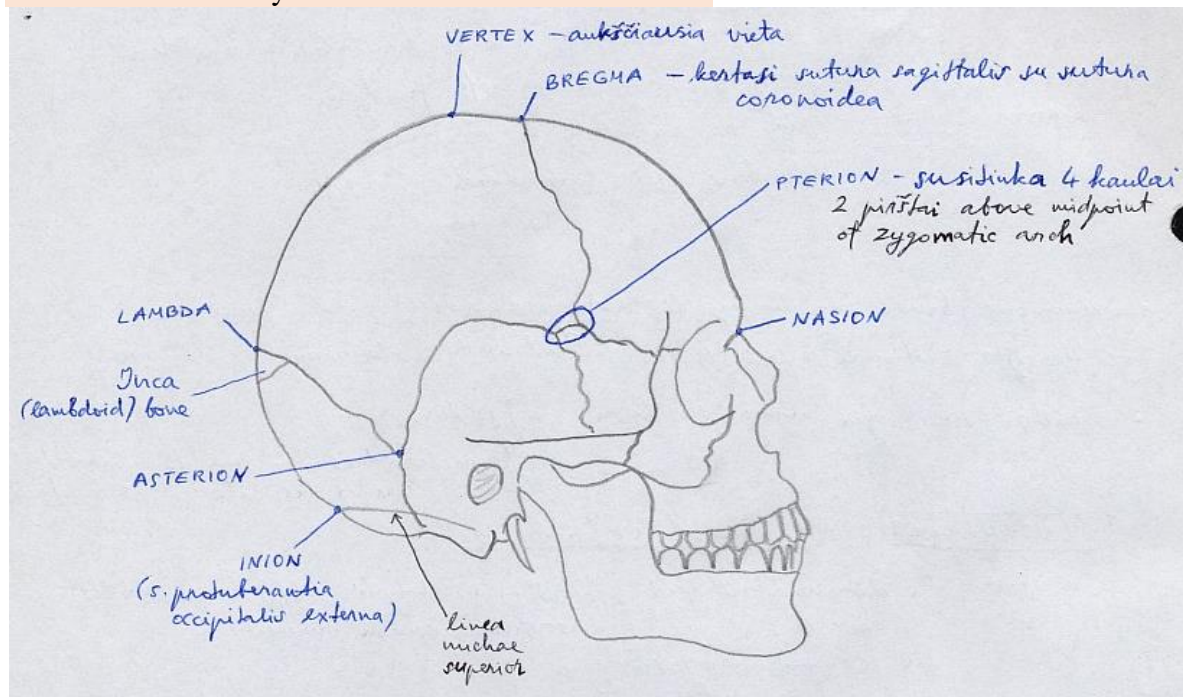 VERTEX – aukščiausia vieta
BREGMA – kertasi sutura sagittalis su sutura
coronoidea
PTERION – susitinka 4 kaulai
2 pirštai above midpoint
of zygomatic arch
LAMBDA
NASION
Inca
(lambdoid) bone
ASTERION
INION
(s. protuberantia
occipitalis externa)
linea
nuchae
superior